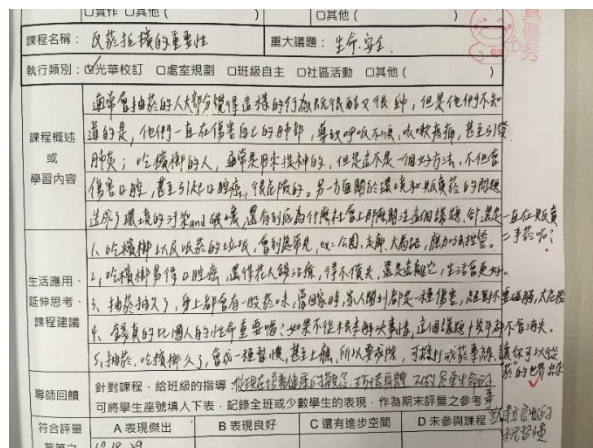 □實作 □其他( ) □其他( )
真優秀
課程名稱： 反菸拒檳的重要性 重大議題： 生命.安全.
執行類別：☑光華校訂 □處室規劃 □班級自主 □社區活動 □其他(
課程概述
或
學習內容
通常會抽菸的人大部分覺得這樣的行為就很酷又很帥，但是他們不知
道的是，他們一直在傷害自己的肺部，導致呼吸不順、咳嗽疼痛，甚至引發
肺炎；吃檳榔的人，通常是用來提神的，但是這不是一個好方法，不但會
傷害口腔，甚至引起口腔癌，很危險的。另一方面關於環境和販賣菸的問題
造成了環境的汙染and破壞，還有到底為什麼社會上那麼關注這個議題，卻還是一直在販賣
二手菸呢？
生活應用、
延伸思考、
課程建議
1、吃檳榔以及吸菸的垃圾，會到處常見，ex：公園、走廊、大馬路，
2、吃檳榔易得口腔癌，還得花大錢治療，得不償失，還是遠離它，生活會更好。
3、抽菸抽久了，身上都會有一股菸味，當回家時，家人聞到都是一種傷害，
4、錢真的比國人的性命重要嗎？如果不從根本解決事情，這個議題十幾年都不會消失。
5、抽菸、吃檳榔久了，會成一種習慣，甚至上癮，所以要戒除，可撥打戒菸專線，讓你可以從
菸的世界出來
導師回饋
針對課程，給班級的指導
可將學生座號填入下表，記錄全班或少數學生的表現，作為期末評量之參考
符合評量 A 表現傑出 B 表現良好 C 還有進步空間 D 未參與課程
17.18.29